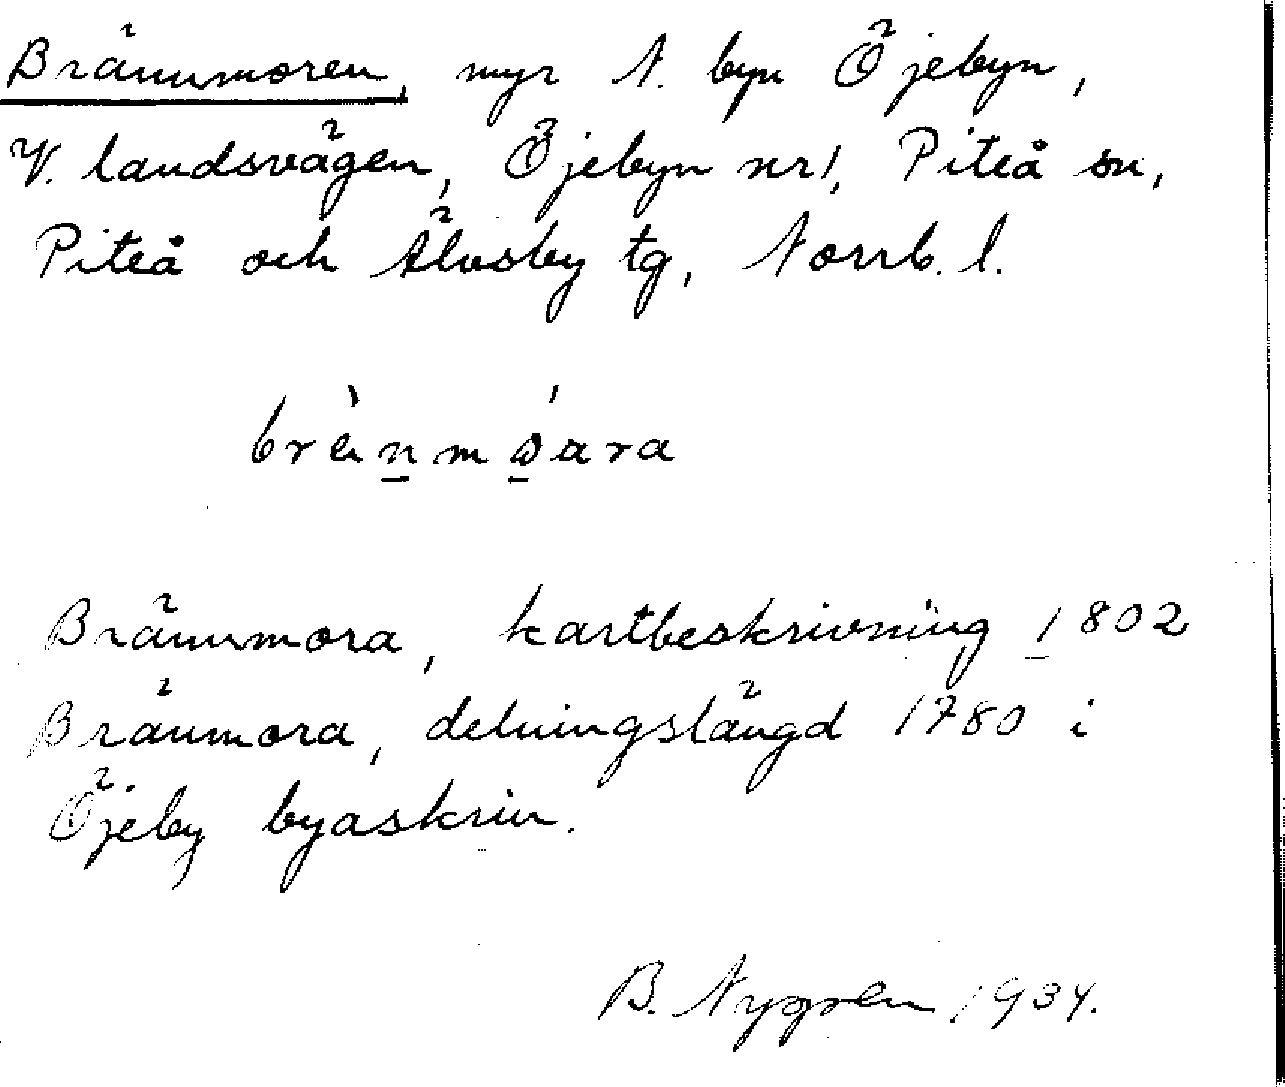 Brännmoren, myr N. byn Öjebyn,
V. landsvägen, Öjebyn nr 1, Piteå sn,
Piteå och Älvsby tg, Norrb. l.
Brännmora, kartbeskrivning 1802
Bränmora, delningslängd 1780 i
Öjeby byaskrin.
B. Nygren 1934.